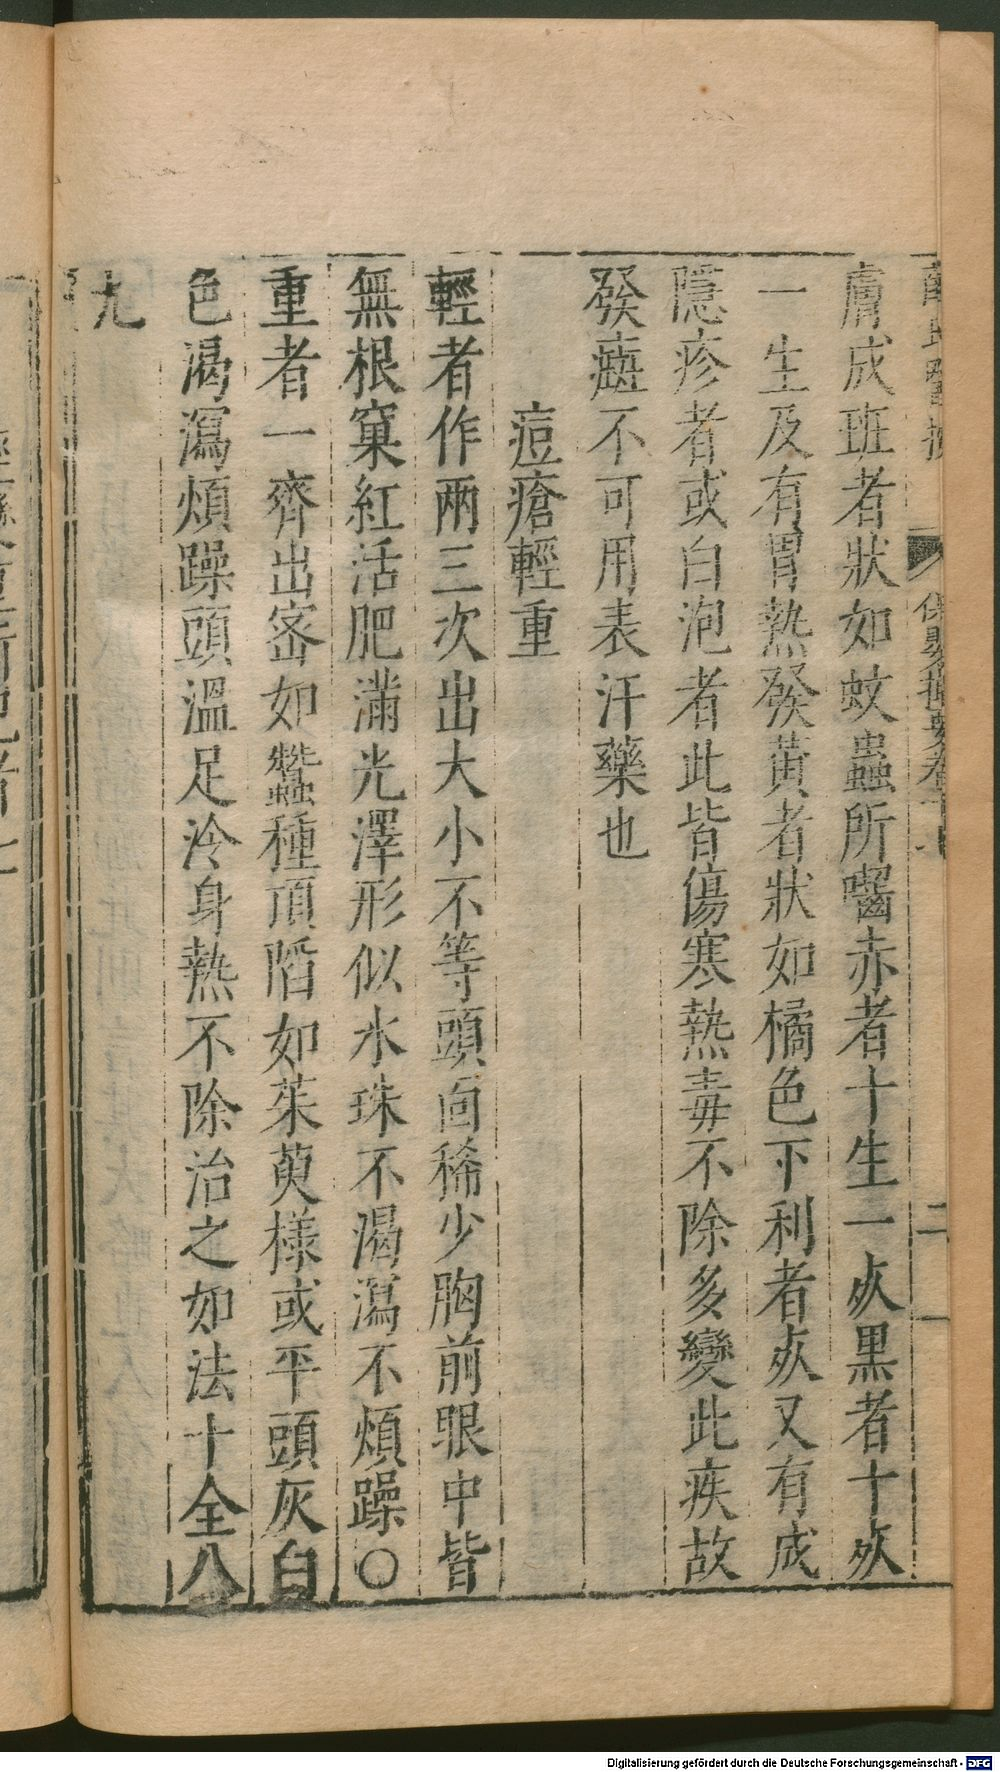 膚成班者狀如蚊蟲所囓赤者十生一死黑者十死
一生及有胃熱發黃者狀如橘色下利者死又有成
隱疹者或白泡者此皆傷寒熱毒不除多變此疾故
發癍不可用表汗藥也
痘瘡輕重
輕者作兩三次出大小不等頭面稀少胸前眼中皆
無根窠紅活肥滿光澤形似水珠不渴瀉不煩躁○
重者一齊出密如蠶種頂陷如茱萸樣或平頭灰白
色渴瀉煩躁頭溫足冷身熱不除治之如法十全八
九
Digitalisierung gefördert durch die Deutsche Forschungsgemeinschaft - DFG